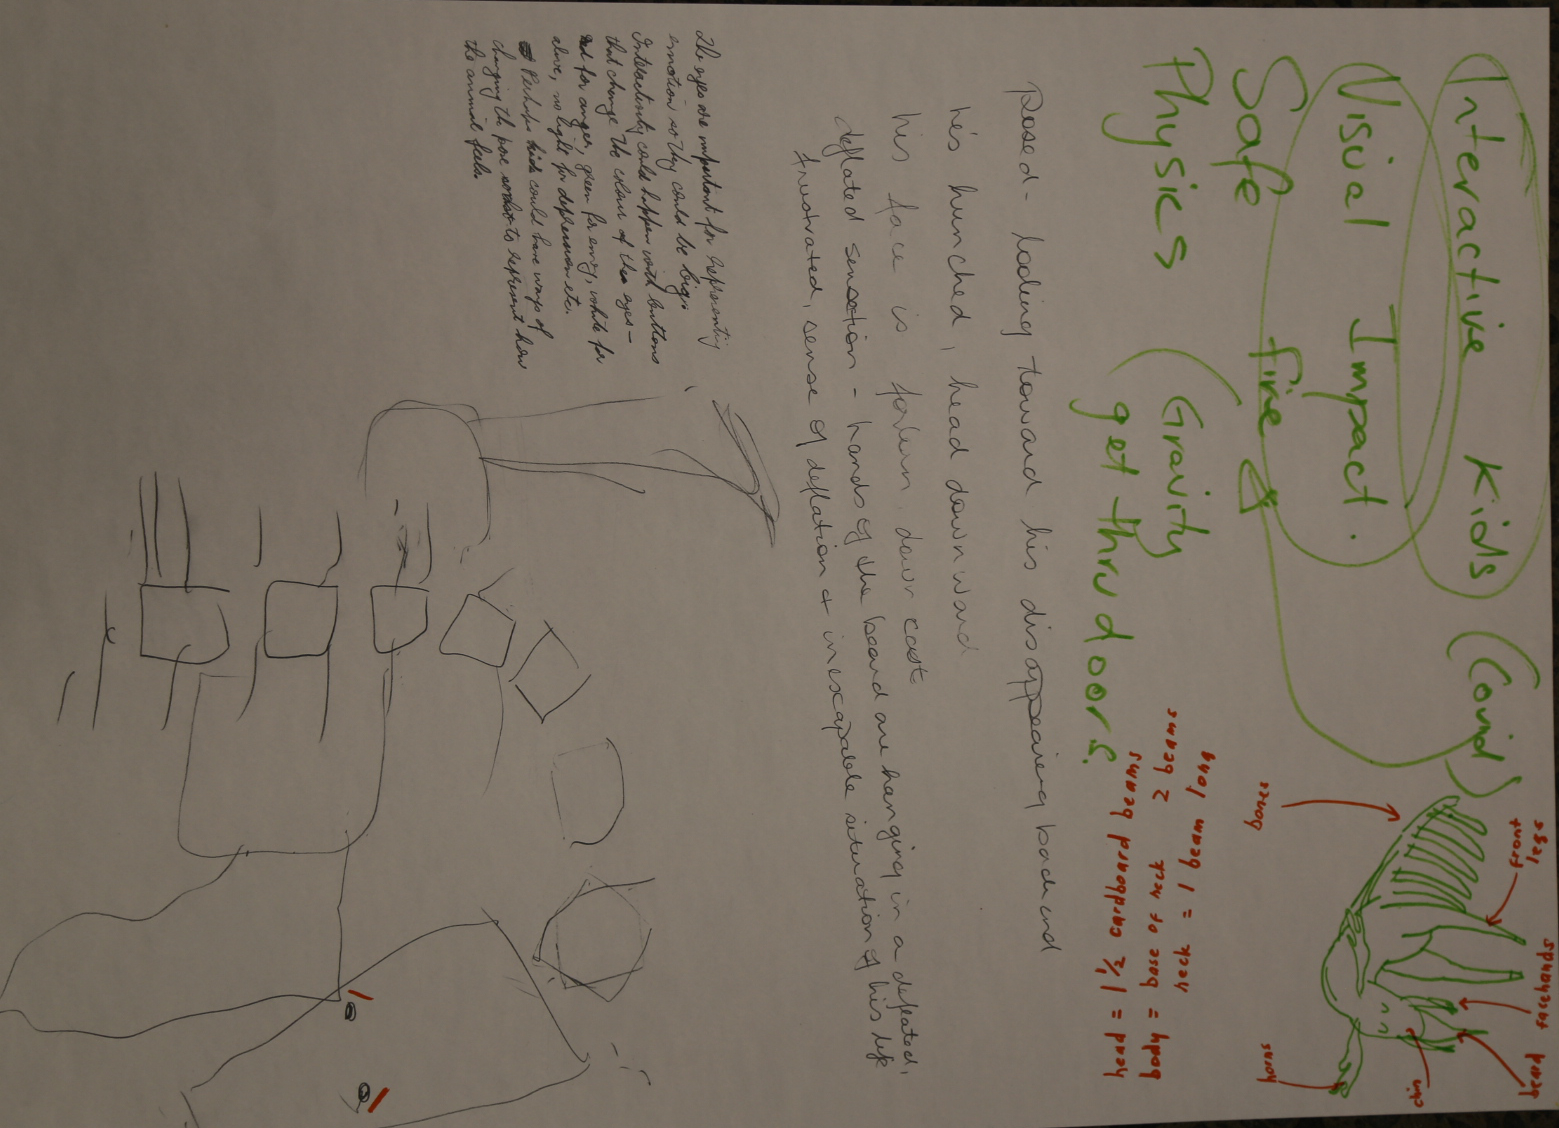 Interactive Kids (Covid)
Visual Impact.
Safe fire
Physics (Gravity
get thru doors?
Posed - looking toward his disappearing backend
he's hunched, head downward
his face is forlorn, down cast
deflated sensation - hands of the beard are hanging in a defeated,
frustrated, sense of deflation & inescapable situation of his life
The eyes are important for representing
emotion so they could be big.
Interactivity could happen with buttons
that change the colour of the eyes -
red for anger, green for envy, white for
alive, no light for depression etc.
Perhaps kids could have ways of
changing the pose to represent how
the animal feels.
head = 1 ½ cardboard beams
body = base of neck 2 beams
neck = 1 beam long
bones
front
legs
facehands
beard
chin
horns